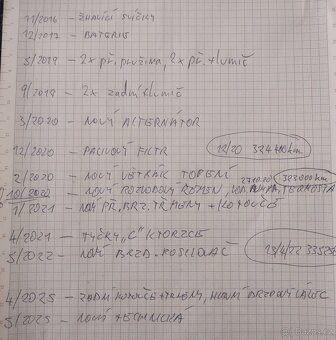 11/2016 - ŽHAVÍCÍ SVÍČKY
12/2017 - BATERIE
5/2019 - 2x př. pružina, 2x př. tlumič
9/2019 - 2x zadní tlumič
3/2020 - NOVÝ ALTERNÁTOR
12/2020 - PALIVOVÝ FILTR
12/20 324 400 km
2/2020 - NOVÝ VĚTRÁK TOPENÍ
323 000 km
10/2020 - NOVÝ ROZVODOVÝ ŘEMEN, PUMPA, TERMOSTA
1/2021 - NOVÉ PŘ. BRZ. TŘMENY + KOTOUČE
4/2021 - TYČKY "C" K TYČCE
5/2022 - NOVÝ BRZD. POSILOVAČ
13/4/22 33528
4/2025 - ZADNÍ KOTOUČE + TŘMENY, HLAVNÍ BRZDOVÝ VÁLEC
5/2025 - NOVÁ TECHNICKÁ